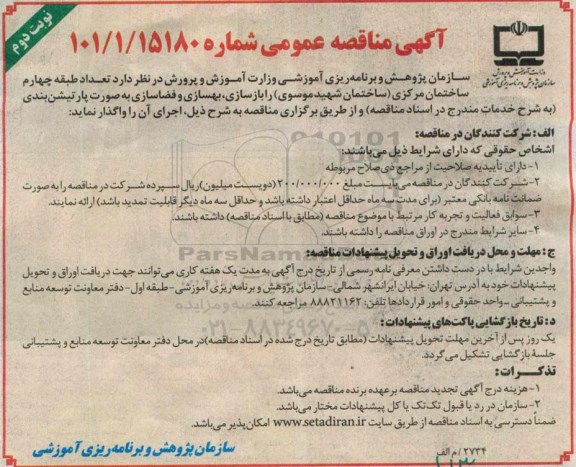 نوبت دوم
آگهی مناقصه عمومی شماره ۱۰۱/۱/۱۵۱۸۰
وزارت آموزش و پرورش
سازمان پژوهش و برنامه‌ریزی آموزشی
سازمان پژوهش و برنامه‌ریزی آموزشی وزارت آموزش و پرورش در نظر دارد تعداد طبقه چهارم
ساختمان مرکزی (ساختمان شهید موسوی) را بازسازی، بهسازی و فضاسازی به صورت پارتیشن‌بندی
(به شرح خدمات مندرج در اسناد مناقصه) و از طریق برگزاری مناقصه به شرح ذیل، اجرای آن را واگذار نماید:
الف: شرکت کنندگان در مناقصه:
اشخاص حقوقی که دارای شرایط ذیل می‌باشند:
۱-دارای تأییدیه صلاحیت از مراجع ذی‌صلاح مربوطه
۲-شرکت کنندگان در مناقصه می‌بایست مبلغ ۲۰۰/۰۰۰/۰۰۰ (دویست میلیون) ریال سپرده شرکت در مناقصه را به صورت
ضمانت نامه بانکی معتبر (برای مدت سه ماه حداقل اعتبار داشته باشد و حداقل سه ماه دیگر قابلیت تمدید باشد) ارائه نمایند.
۳-سوابق فعالیت و تجربه کار مرتبط با موضوع مناقصه (مطابق با اسناد مناقصه) داشته باشند.
۴-سایر شرایط مندرج در اوراق مناقصه را داشته باشند.
ج: مهلت و محل دریافت اوراق و تحویل پیشنهادات مناقصه:
واجدین شرایط با در دست داشتن معرفی نامه رسمی از تاریخ درج آگهی به مدت یک هفته کاری می‌توانند جهت دریافت اوراق و تحویل
پیشنهادات خود به آدرس تهران: خیابان ایرانشهر شمالی-سازمان پژوهش و برنامه‌ریزی آموزشی-طبقه اول-دفتر معاونت توسعه منابع
و پشتیبانی-واحد حقوقی و امور قراردادها تلفن: ۸۸۸۲۱۱۶۲ مراجعه کنند.
د: تاریخ بازگشایی پاکت‌های پیشنهادات:
یک روز پس از آخرین مهلت تحویل پیشنهادات (مطابق تاریخ درج شده در اسناد مناقصه) در محل دفتر معاونت توسعه منابع و پشتیبانی
جلسهٔ بازگشایی تشکیل می‌گردد.
تذکرات:
۱-هزینه درج آگهی تجدید مناقصه بر عهده برنده مناقصه می‌باشد.
۲-سازمان در رد یا قبول تک‌تک یا کل پیشنهادات مختار می‌باشد.
ضمناً دسترسی به اسناد مناقصه از طریق سایت www.setadiran.ir امکان‌پذیر می‌باشد.
سازمان پژوهش و برنامه‌ریزی آموزشی
۲۷۳۴/م الف
ParsNamad
۰۲۱-۸۸۳۴۹۶۷۰-۵